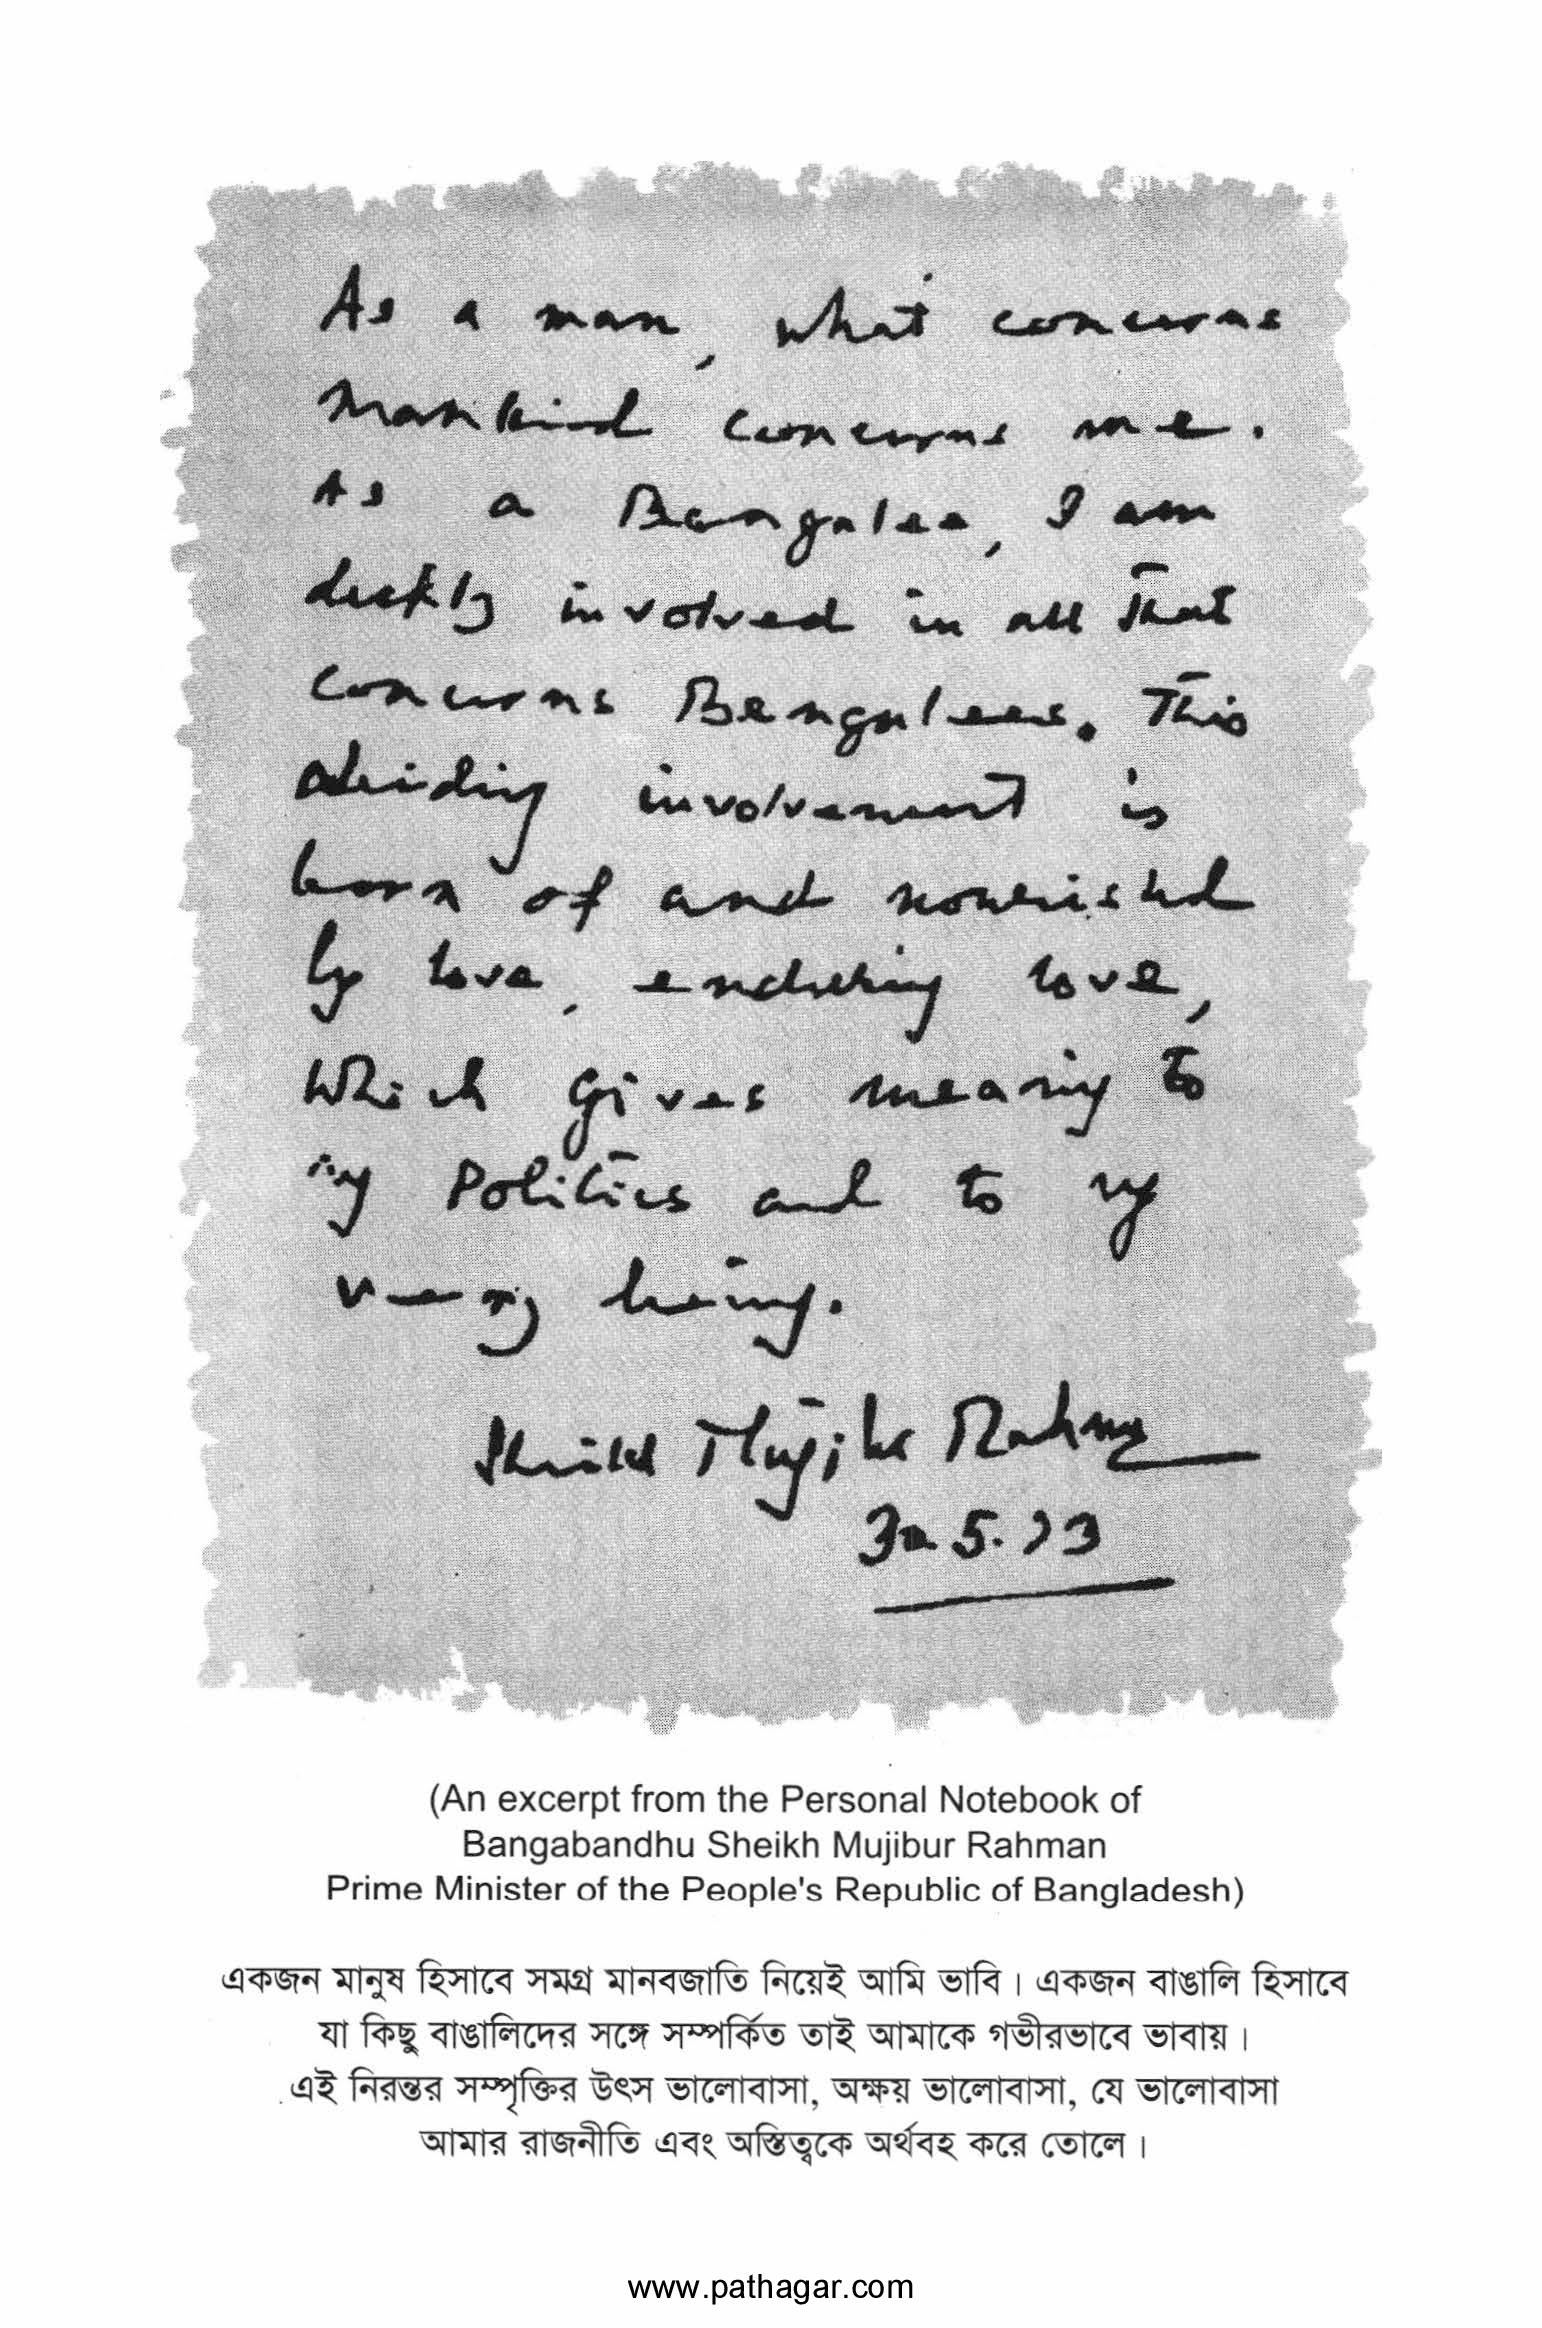 As a man, what concerns
mankind concerns me.
As a Bengalee, I am
deeply involved in all that
concerns Bengalees. This
abiding involvement is
born of and nourished
by love, enduring love,
which gives meaning to
my Politics and to my
very being.
Sheikh Mujibur Rahman
30.5.73
(An excerpt from the Personal Notebook of
Bangabandhu Sheikh Mujibur Rahman
Prime Minister of the People's Republic of Bangladesh)
একজন মানুষ হিসাবে সমগ্র মানবজাতি নিয়েই আমি ভাবি। একজন বাঙালি হিসাবে
যা কিছু বাঙালিদের সঙ্গে সম্পর্কিত তাই আমাকে গভীরভাবে ভাবায়।
এই নিরন্তর সম্পৃক্তির উৎস ভালোবাসা, অক্ষয় ভালোবাসা, যে ভালোবাসা
আমার রাজনীতি এবং অস্তিত্বকে অর্থবহ করে তোলে।
www.pathagar.com